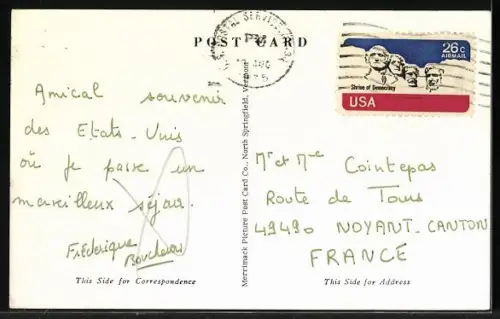 POST CARD
U.S. POSTAL SERVICE
PM
AUG
26c
AIRMAIL
Shrine of Democracy
USA
Amical souvenir
des Etats-Unis
où je passe un
merveilleux séjour.
Frédérique
This Side for Correspondence
Merrimack Picture Post Card Co., North Springfield, Vermont
Mr et Mme Cointepas
Route de Tours
49490 NOYANT-CANTON
FRANCE
This Side for Address